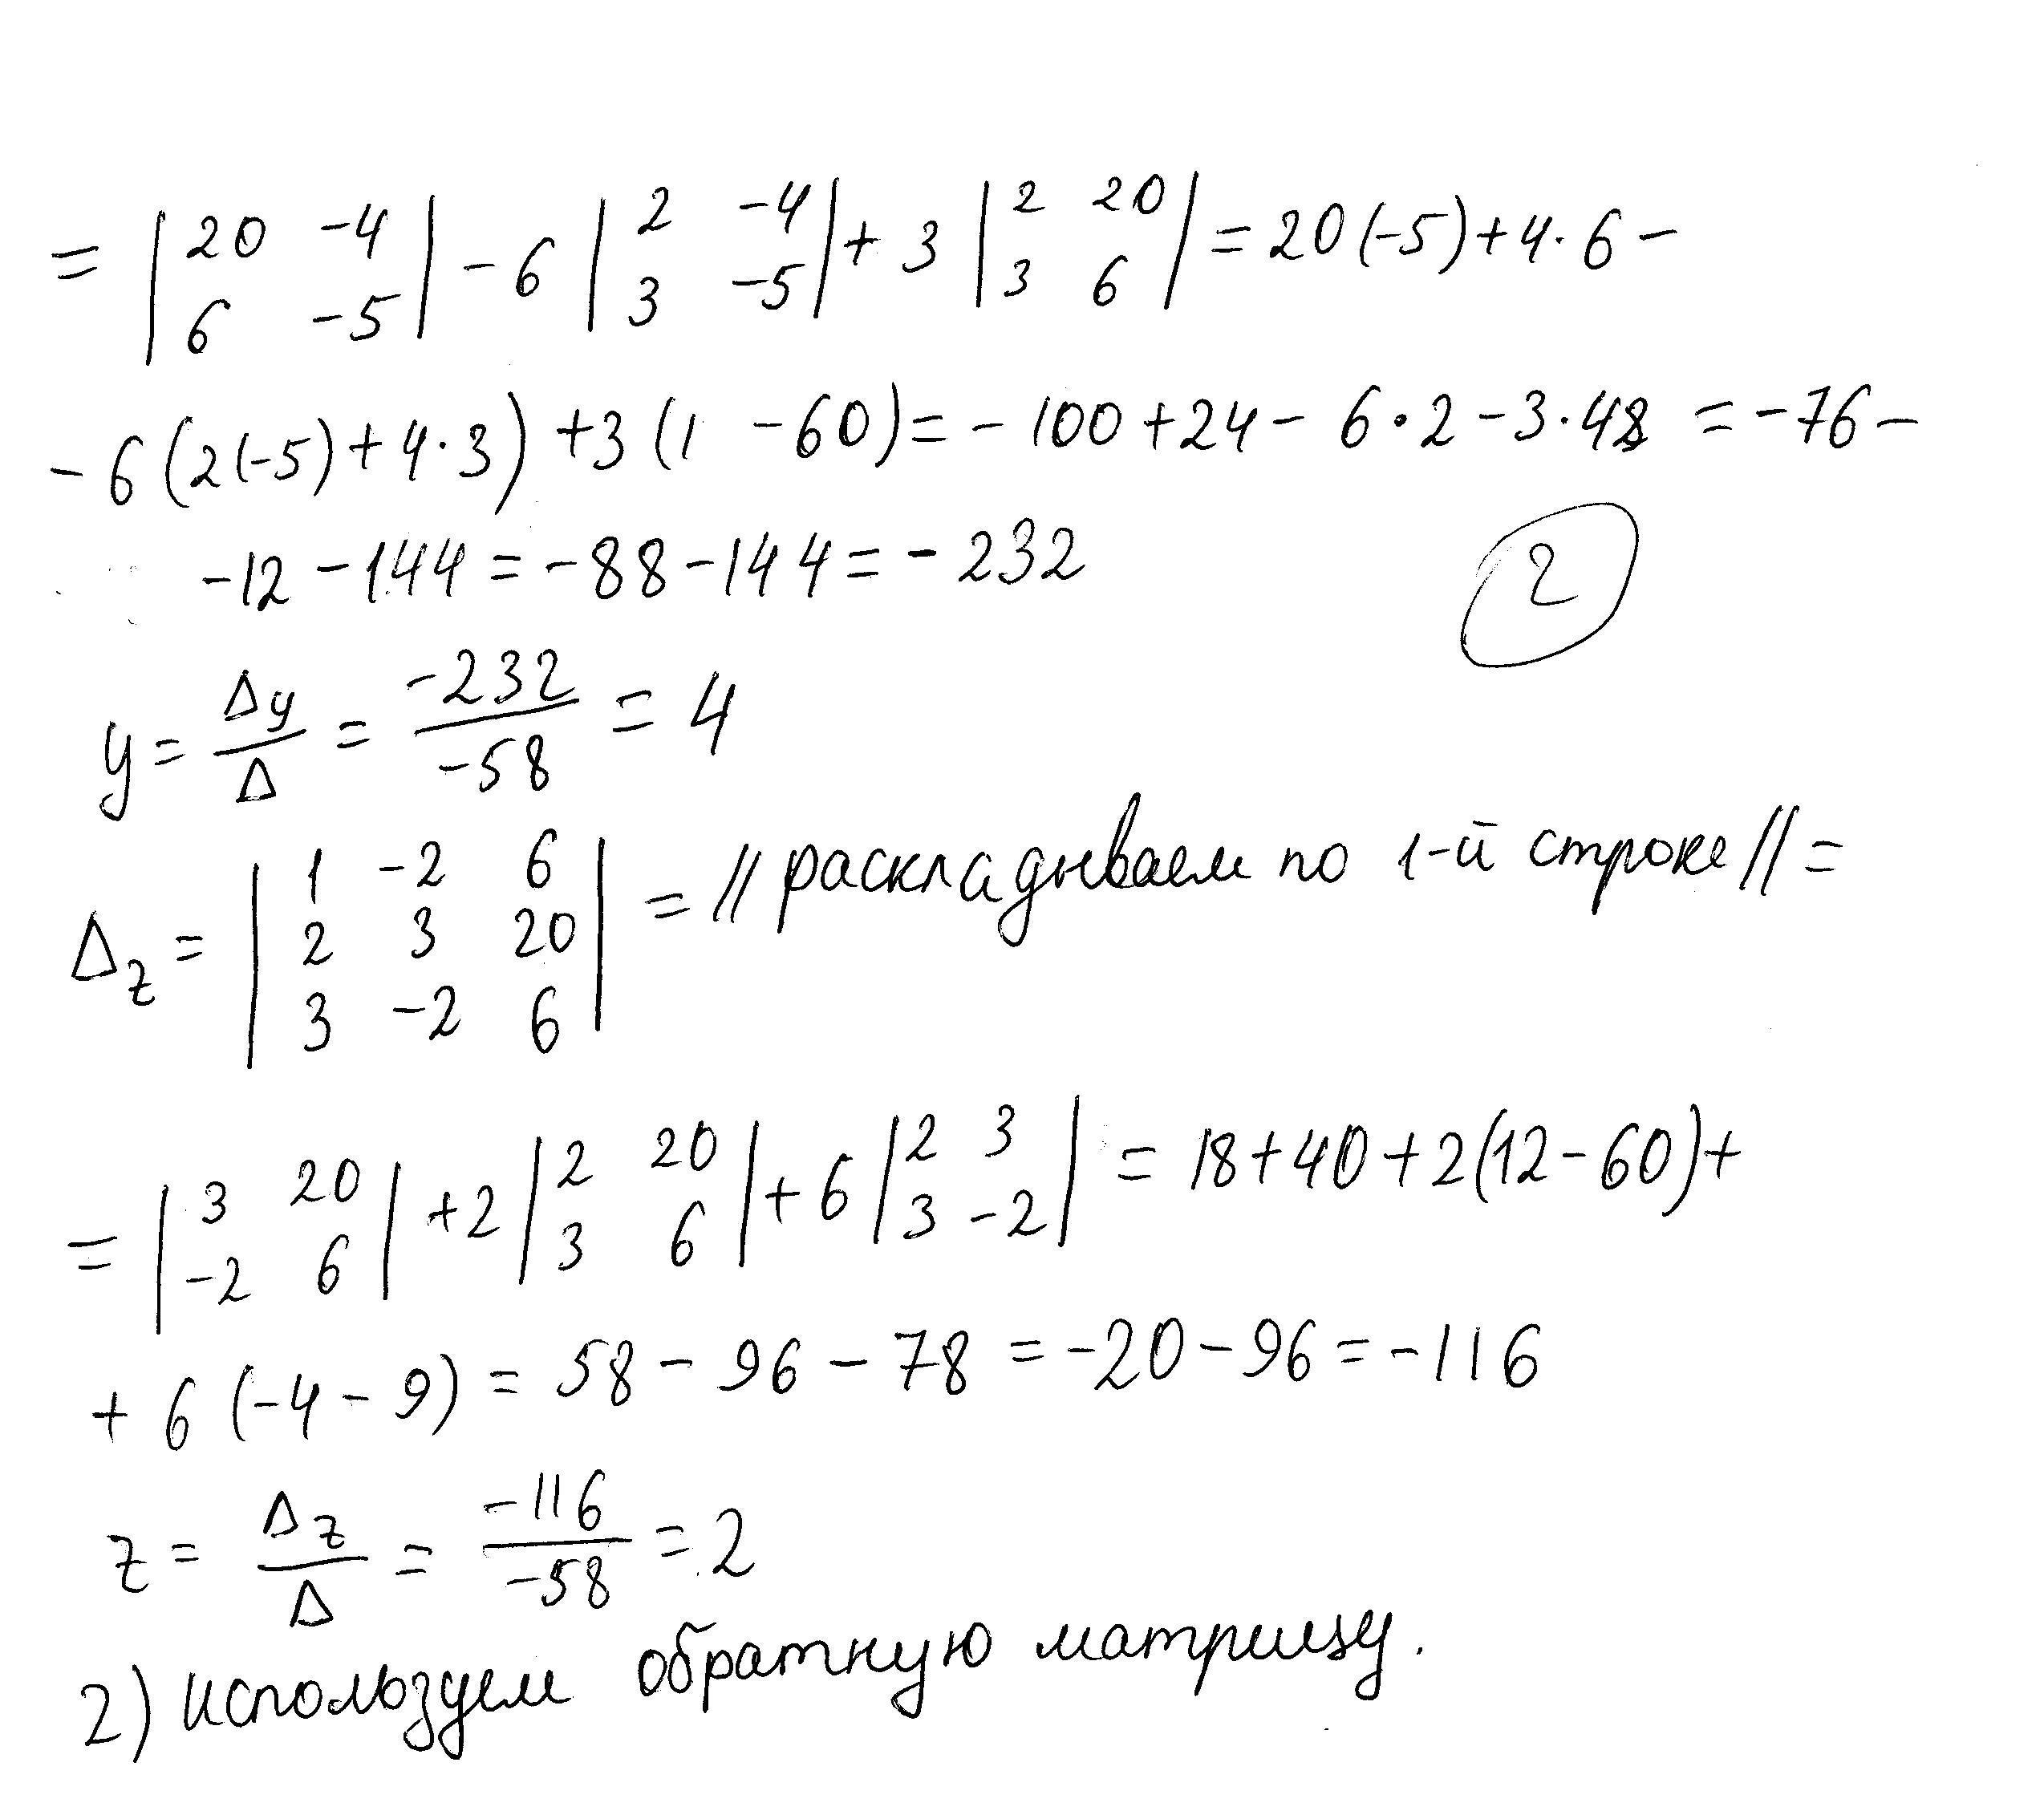 = | 20 -4 | - 6 | 2 -4 | + 3 | 2 20 | = 20(-5)+4·6-
| 6 -5 | | 3 -5 | | 3 6 |
-6(2(-5)+4·3)+3(1 -60)=-100+24-6·2-3·48=-76-
-12-144=-88-144=-232
2
y = Δy/Δ = -232/-58 = 4
Δz = | 1 -2 6 | = //раскладываем по 1-й строке//=
| 2 3 20 |
| 3 -2 6 |
= | 3 20 | +2 | 2 20 | +6 | 2 3 | = 18+40+2(12-60)+
| -2 6 | | 3 6 | | 3 -2 |
+6(-4-9)=58-96-78=-20-96=-116
z = Δz/Δ = -116/-58 = 2
2) используем обратную матрицу.